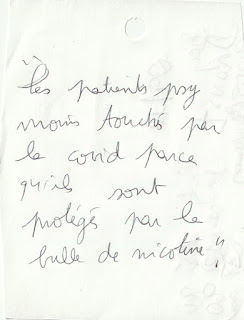 "Les patients psy
moins touchés par
le covid parce
qu'ils sont
protégés par la
bulle de nicotine".